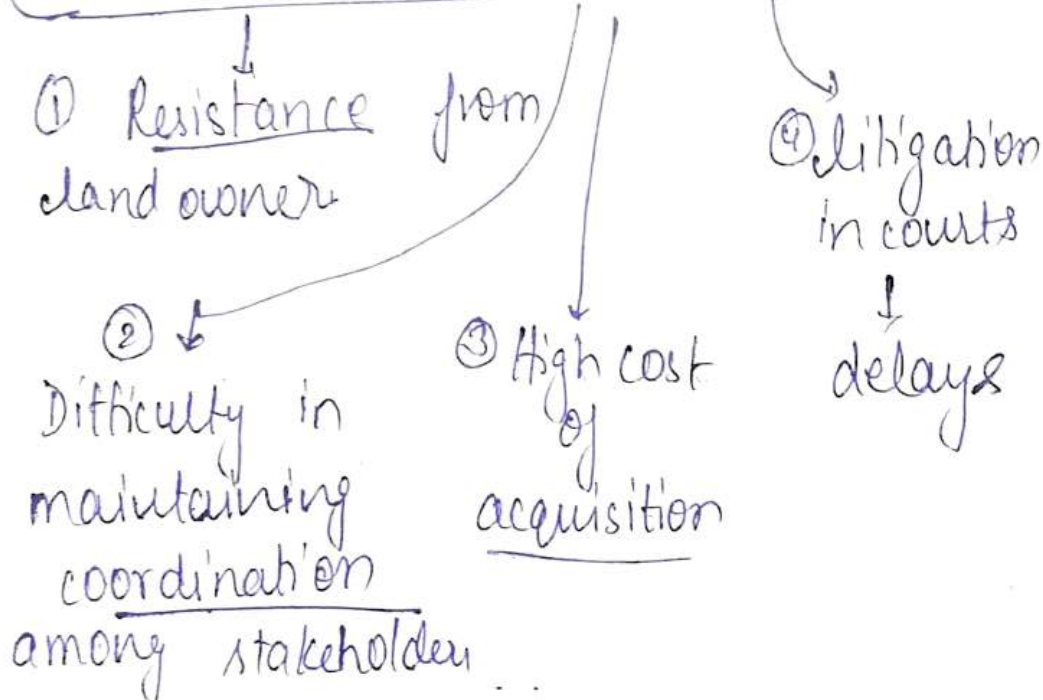 ① Resistance from
land owner
②
Difficulty in
maintaining
coordination
among stakeholder
③ High cost
of
acquisition
④ litigation
in courts
delays